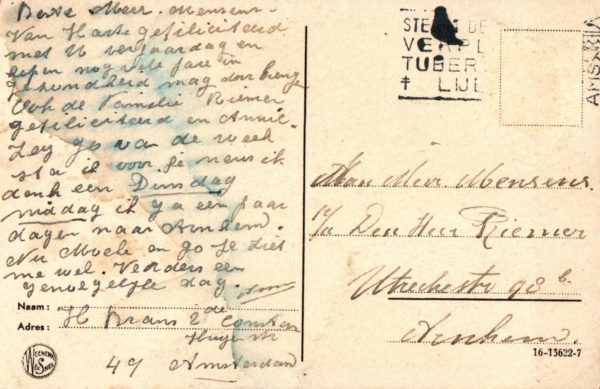 Beste Meir. Mensens.
Van Harte gefiliciteerd
met U verjaardag en
hopen nog vele jare in
gezondheid mag door brenge
Ook de Familie Riemer
gefiliciteerd en Annie.
Zeg go van de week
sta ik voor Je neus ik
denk een Dinsdag
middag ik ga een paar
dagen naar Arnhem.
Nu Moele en go Je ziet
me wel. Verders een
genoegelijke dag.
Naam:
Adres: H Brans 2de Constan
Huygenstr
49 Amsterdam
WEENENK & SNEL
STE DE
VERPL
TUBER
LIJE
AMST
Aan Meir Mensens.
p/a Den Heer Riemer
Utrechestr 98 b.
Arnhem.
16-13622-7